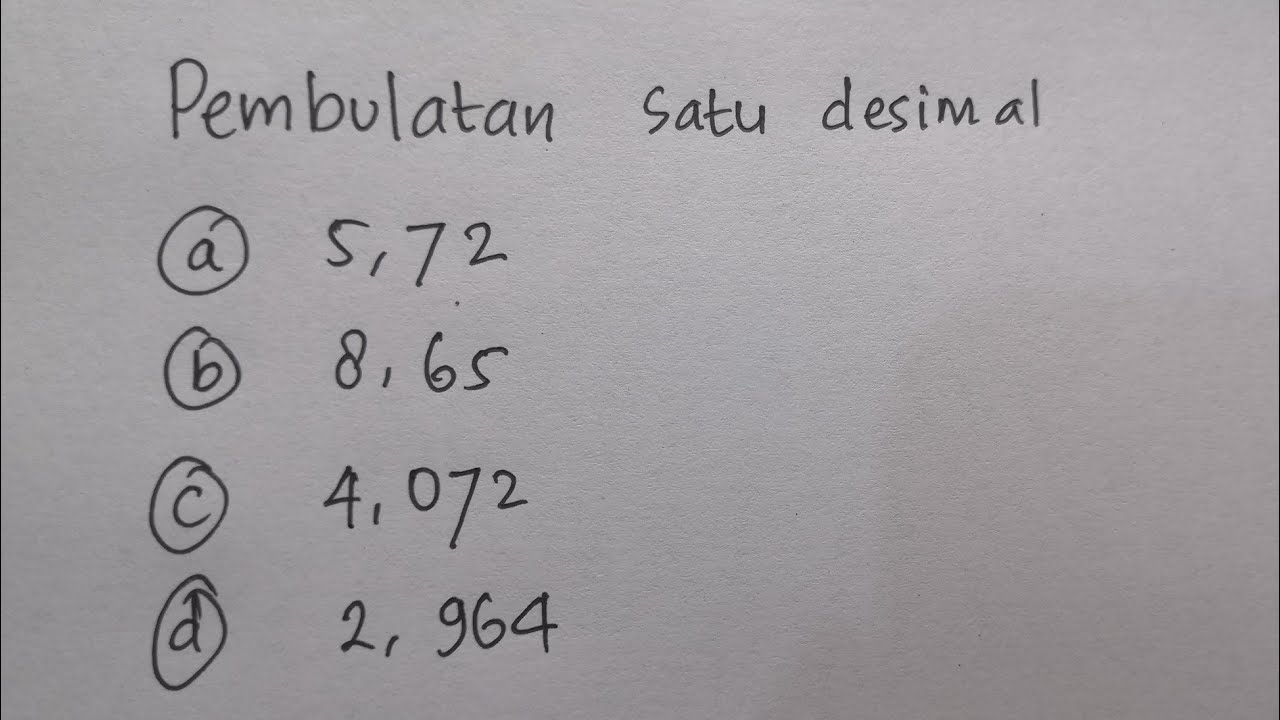 Pembulatan satu desimal
a 5,72
b 8,65
c 4,072
d 2,964